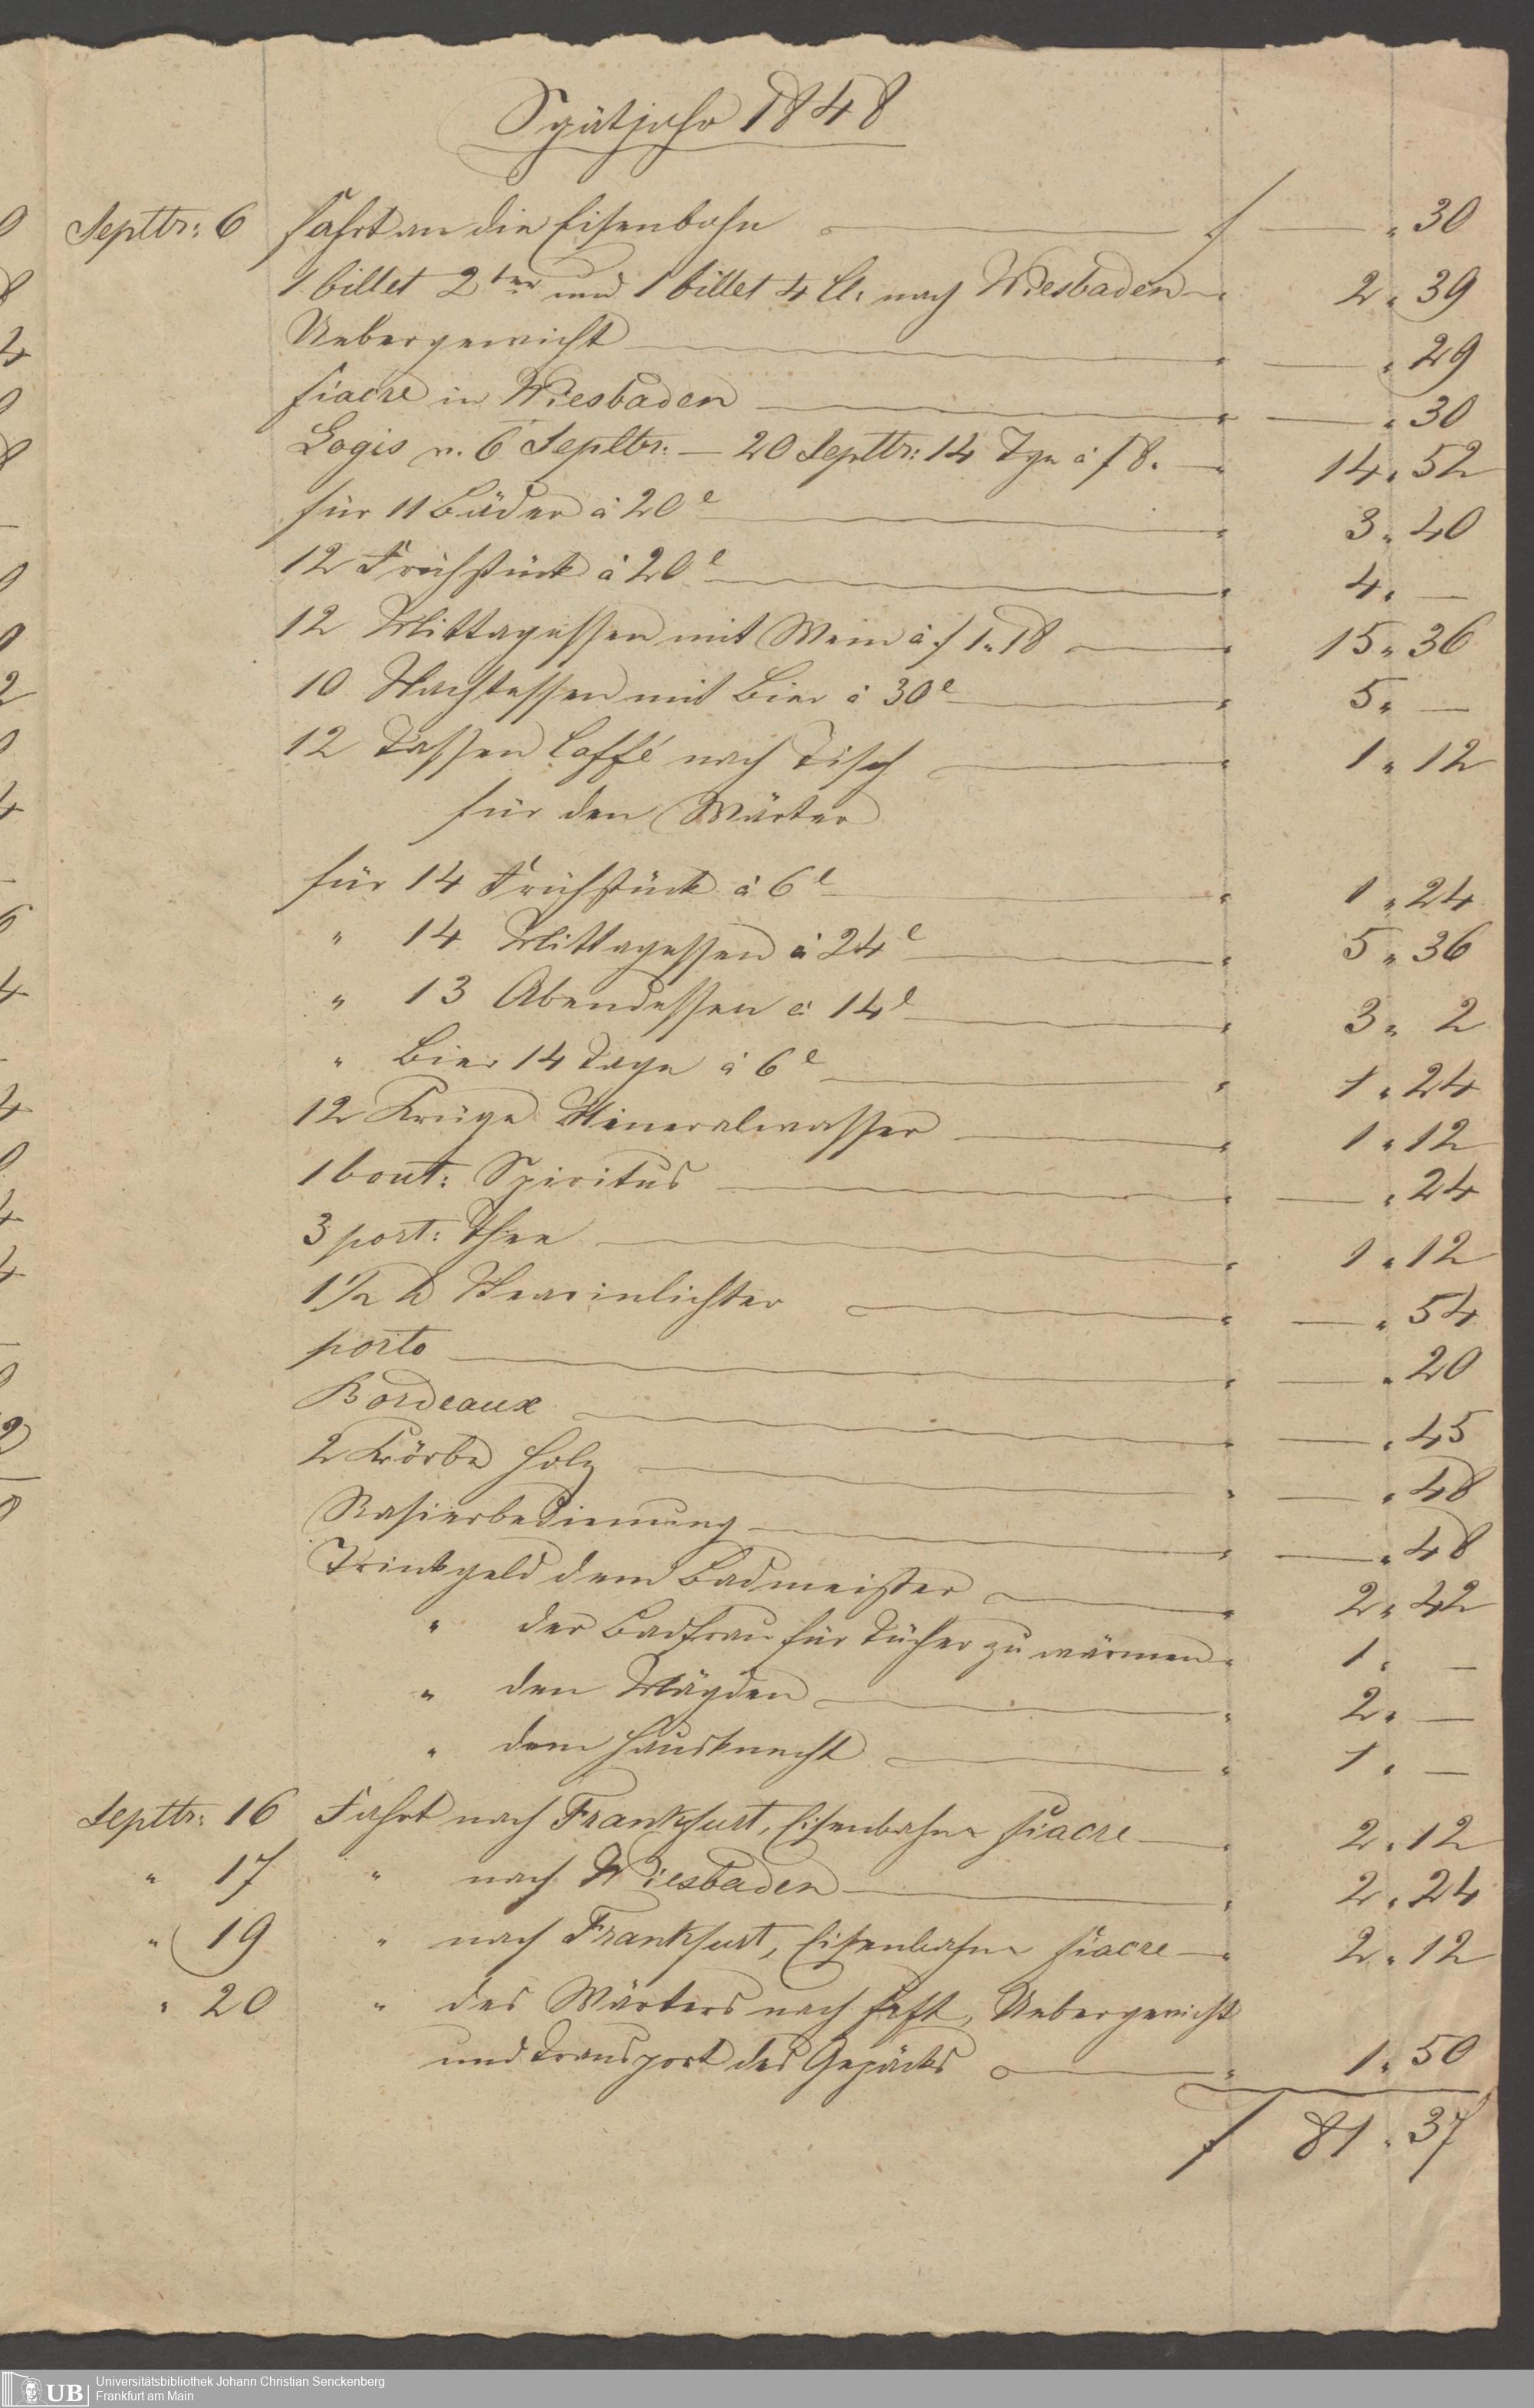 Spätjahr 1848
Septbr: 6 Fahrt an die Eisenbahn f — „ 30
1 billet 2ter und 1 billet 4 Cl: nach Wiesbaden „ 2 „ 39
Uebergewicht „ — „ 29
Fiacre in Wiesbaden „ — „ 30
Logis v. 6 Septbr: — 20 Septbr: 14 Tge à f 8. „ 14 „ 52
für 11 Bäder à 20 „ 3 „ 40
12 Frühstück à 20 „ 4 „ —
12 Mittagessen mit Wein à f 1 „ 18 „ 15 „ 36
10 Nachtessen mit Bier à 30 „ 5 „ —
12 Tassen Caffé nach Tisch „ 1 „ 12
für den Wärter
für 14 Frühstück à 6 „ 1 „ 24
„ 14 Mittagessen à 24 „ 5 „ 36
„ 13 Abendessen à 14 „ 3 „ 2
„ Bier 14 Tage à 6 „ 1 „ 24
12 Krüge Mineralwasser „ 1 „ 12
1 bout: Spiritus „ — „ 24
3 port: Thee „ 1 „ 12
1 1/2 ℔ Stearinlichter „ — „ 54
porto „ — „ 20
Bordeaux „ — „ 45
2 Körbe Holz „ — „ 48
Rasierbedienung „ — „ 48
Trinkgeld dem Badmeister „ 2 „ 42
„ der Badfrau für Tücher zu wärmen „ 1 „ —
„ den Mägden „ 2 „ —
„ dem Hausknecht „ 1 „ —
Septbr: 16 Fahrt nach Frankfurt, Eisenbahn Fiacre „ 2 „ 12
„ 17 „ nach Wiesbaden „ 2 „ 24
„ 19 „ nach Frankfurt, Eisenbahn Fiacre „ 2 „ 12
„ 20 „ des Wärters nach Uebergewicht
und Transport des Gepäcks „ 1 „ 50
f 81 „ 37
UB Universitätsbibliothek Johann Christian Senckenberg
Frankfurt am Main